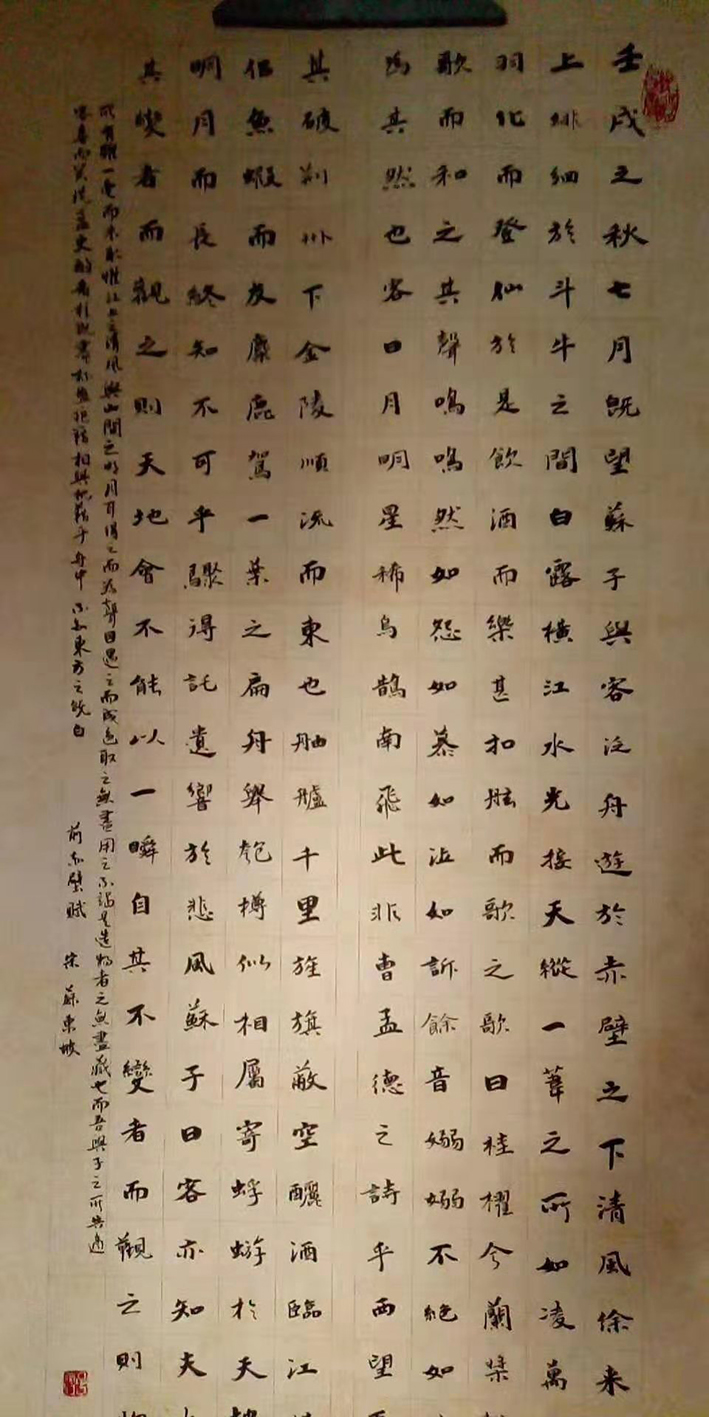 壬戌之秋七月既望蘇子與客泛舟遊於赤壁之下清風徐来
上徘徊於斗牛之間白露橫江水光接天縱一葦之所如凌萬
羽化而登仙於是飲酒而樂甚扣舷而歌之歌曰桂櫂兮蘭槳
歌而和之其聲嗚嗚然如怨如慕如泣如訴餘音嫋嫋不絕如
為其然也客曰月明星稀烏鵲南飛此非曹孟德之詩乎西望
其破荊州下金陵順流而東也舳艫千里旌旗蔽空釃酒臨江
侶魚蝦而友麋鹿駕一葉之扁舟舉匏樽似相屬寄蜉蝣於天
明月而長終知不可乎驟得託遺響於悲風蘇子曰客亦知夫
其變者而觀之則天地曾不能以一瞬自其不變者而觀之則
所有雖一毫而不取惟江上之清風與山間之明月耳得之而為聲目遇之而成色取之無盡用之不竭是造物者之無盡藏也而吾與子之所共適
客喜而笑洗盞更酌肴核既盡杯盤狼藉相與枕藉乎舟中不知東方之既白
前赤壁賦 宋 蘇東坡